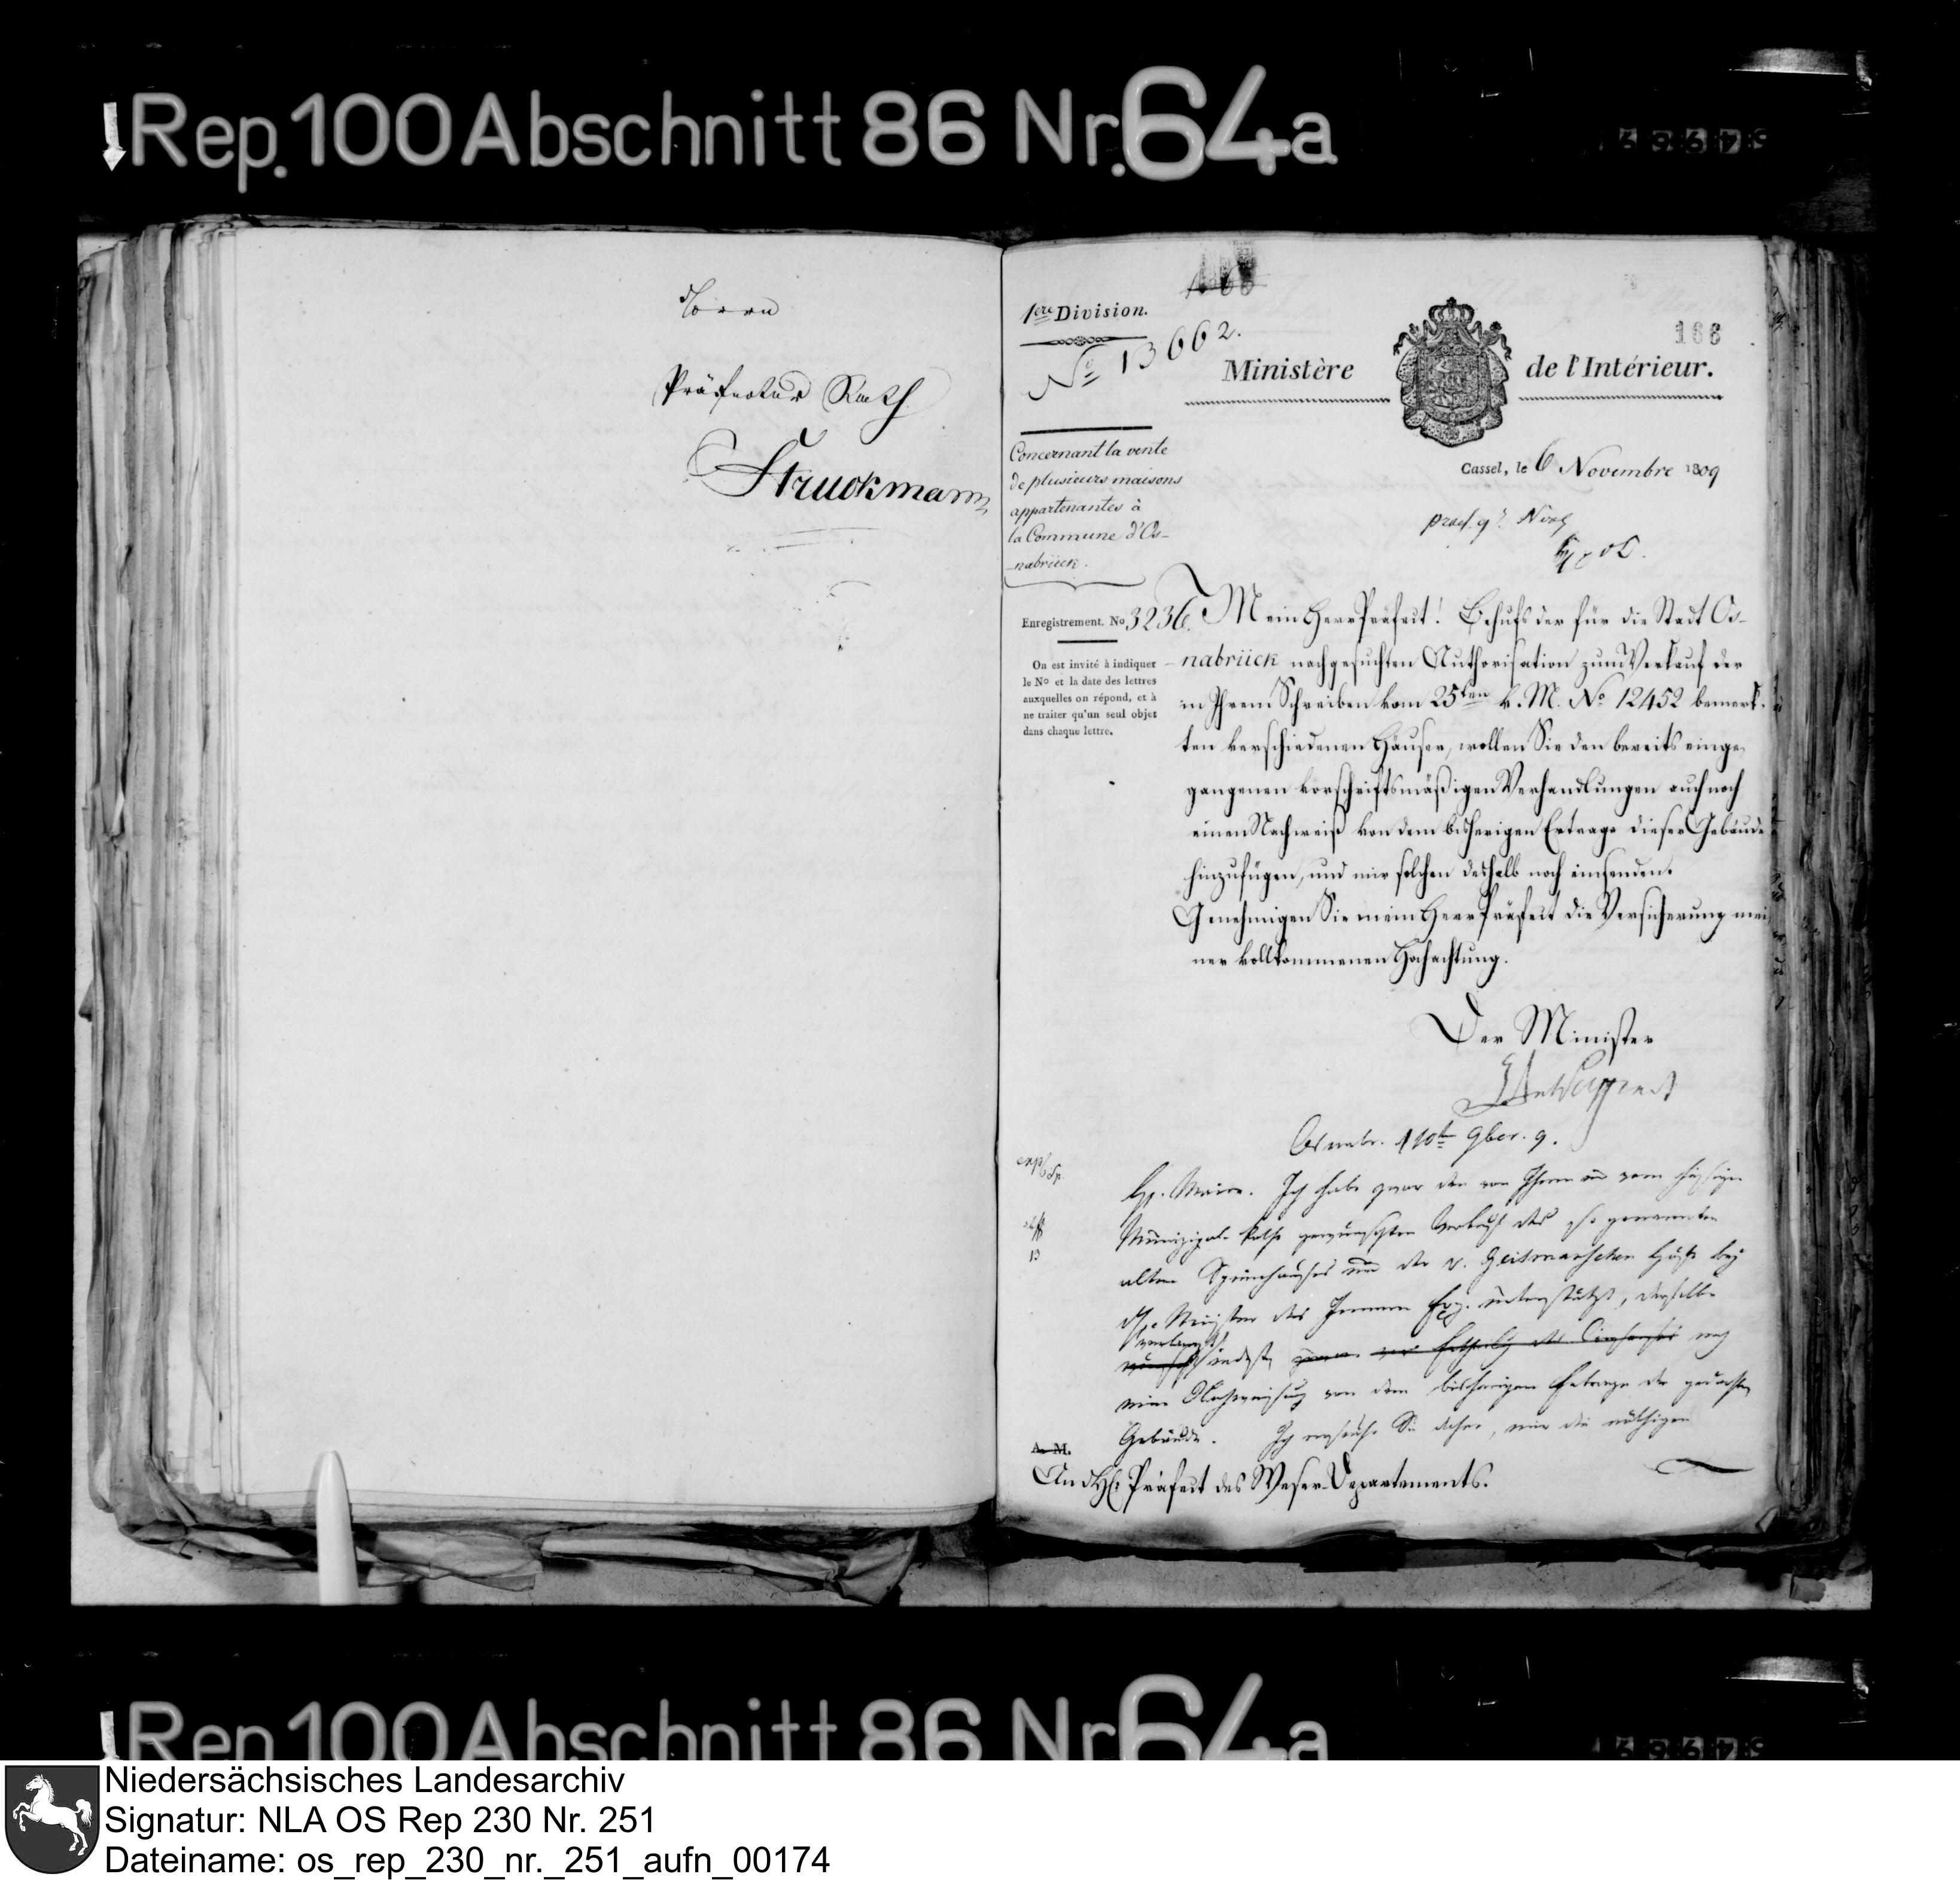 Rep. 100 Abschnitt 86 Nr. 64a
Herrn
Präfectur Rath
Struckmann
1ere Division.
No 13662.
166
Ministère de l'Intérieur.
Concernant la vente
de plusieurs maisons
appartenantes à
la Commune d'Os-
-nabrück.
Cassel, le 6 Novembre 1809
Enregistrement. No 3236.
On est invité à indiquer
le No et la date des lettres
auxquelles on répond, et à
ne traiter qu'un seul objet
dans chaque lettre.
Mein Herr Präfect! Behufs der für die Stadt Os-
-nabrück nachgesuchten Authorisation zum Verkauf der
in Ihrem Schreiben vom 25ten v. M. No 12452 bemerk-
ten verschiedenen Häuser, wollen Sie den bereits einge-
gangenen vorschriftsmäßigen Verhandlungen auch noch
einen Nachweiß von dem bisherigen Ertrage dieser Gebäude
hinzufügen, und mir solchen deshalb noch einsenden.
Genehmigen Sie mein Herr Präfect die Versicherung mei
ner vollkommenen Hochachtung.
Der Minister
Osnabr. 110t 9ber. 9.
H. Maire. Ich habe zwar den von Ihnen und vom hiesigen
Munizipal-Rathe gewünschten Verkauf des so genannten
alten Spinnhauses und der v. Geismarschen Häuser bey
Minister des Innern unterstützt, derselbe
verlangt indeß noch
eine Nachweisung von dem bisherigen Ertrage der gedachten
Gebäude. Ich ersuche Sie daher, mir die nöthigen
13
A. M.
An H. Präfect des Weser-Departements.
Rep. 100 Abschnitt 86 Nr. 64a
Niedersächsisches Landesarchiv
Signatur: NLA OS Rep 230 Nr. 251
Dateiname: os_rep_230_nr._251_aufn_00174